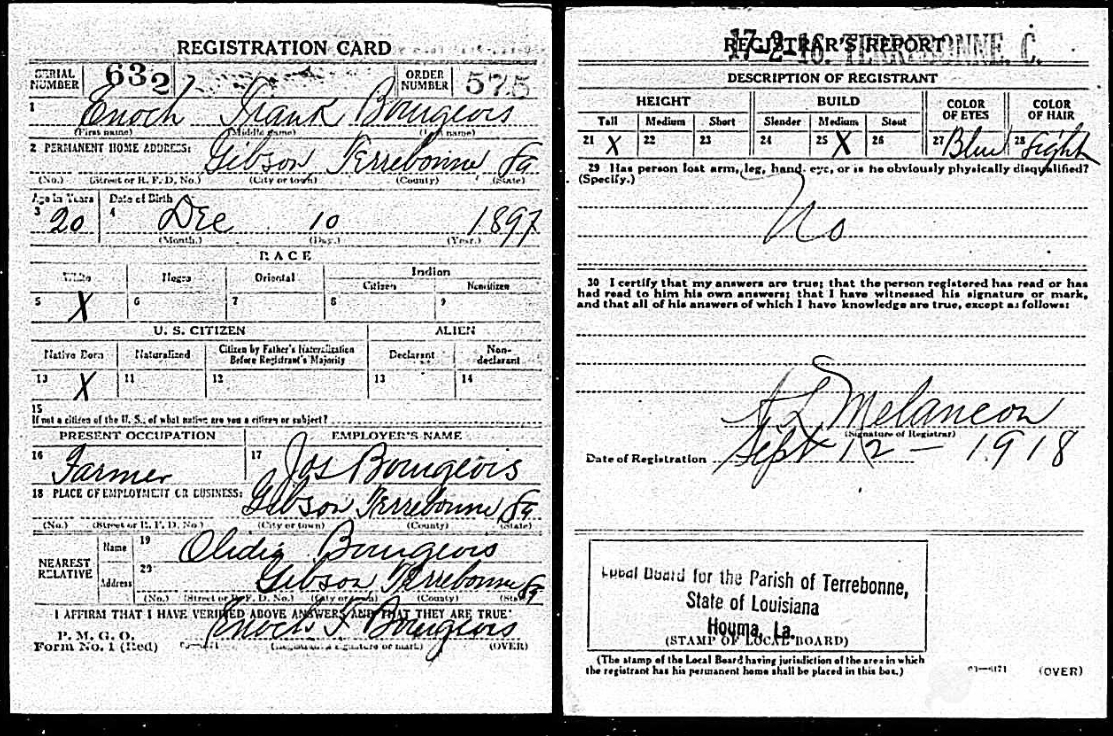 REGISTRATION CARD
SERIAL NUMBER 632 ORDER NUMBER 575
1 Enoch Frank Bourgeois
(First name) (Middle name) (Last name)
2 PERMANENT HOME ADDRESS: Gibson Terrebonne La
(No.) (Street or R. F. D. No.) (City or town) (County) (State)
Age in Years Date of Birth
3 20 4 Dec 10 1897
(Month.) (Day.) (Year.)
RACE
White Negro Oriental Indian
Citizen Noncitizen
5 X 6 7 8 9
U. S. CITIZEN ALIEN
Native Born Naturalized Citizen by Father's Naturalization Before Registrant's Majority Declarant Non-declarant
13 X 11 12 13 14
15
If not a citizen of the U. S., of what nation are you a citizen or subject?
PRESENT OCCUPATION EMPLOYER'S NAME
16 Farmer 17 Jos Bourgeois
18 PLACE OF EMPLOYMENT OR BUSINESS: Gibson Terrebonne La
(No.) (Street or R. F. D. No.) (City or town) (County) (State)
NEAREST RELATIVE Name 19 Olidia Bourgeois
Address 20 Gibson Terrebonne La
(No.) (Street or R. F. D. No.) (City or town) (County) (State)
I AFFIRM THAT I HAVE VERIFIED ABOVE ANSWERS AND THAT THEY ARE TRUE
Enoch F Bourgeois
P. M. G. O.
Form No. 1 (Red) 03—6171 (Registrant's signature or mark) (OVER)
REGISTRAR'S REPORT
17-2-16. TERREBONNE. C.
DESCRIPTION OF REGISTRANT
HEIGHT BUILD COLOR OF EYES COLOR OF HAIR
Tall Medium Short Slender Medium Stout
21 X 22 23 24 25 X 26 27 Blue 28 Light
29 Has person lost arm, leg, hand, eye, or is he obviously physically disqualified?
(Specify.)
No
30 I certify that my answers are true; that the person registered has read or has
had read to him his own answers; that I have witnessed his signature or mark,
and that all of his answers of which I have knowledge are true, except as follows:
A L Melancon
(Signature of Registrar)
Date of Registration Sept 12 - 1918
Local Board for the Parish of Terrebonne,
State of Louisiana
Houma, La.
(STAMP OF LOCAL BOARD)
(The stamp of the Local Board having jurisdiction of the area in which
the registrant has his permanent home shall be placed in this box.)
03—6171 (OVER)